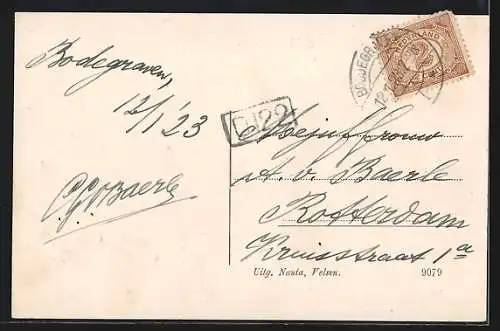 Bodegraven,
12/1 '23
BODEGR
NEDERLAND
DJ22
Mejuffrouw
A. v. Baerle
Rotterdam
Kruisstraat 1a
Uitg. Nauta, Velsen.
9079